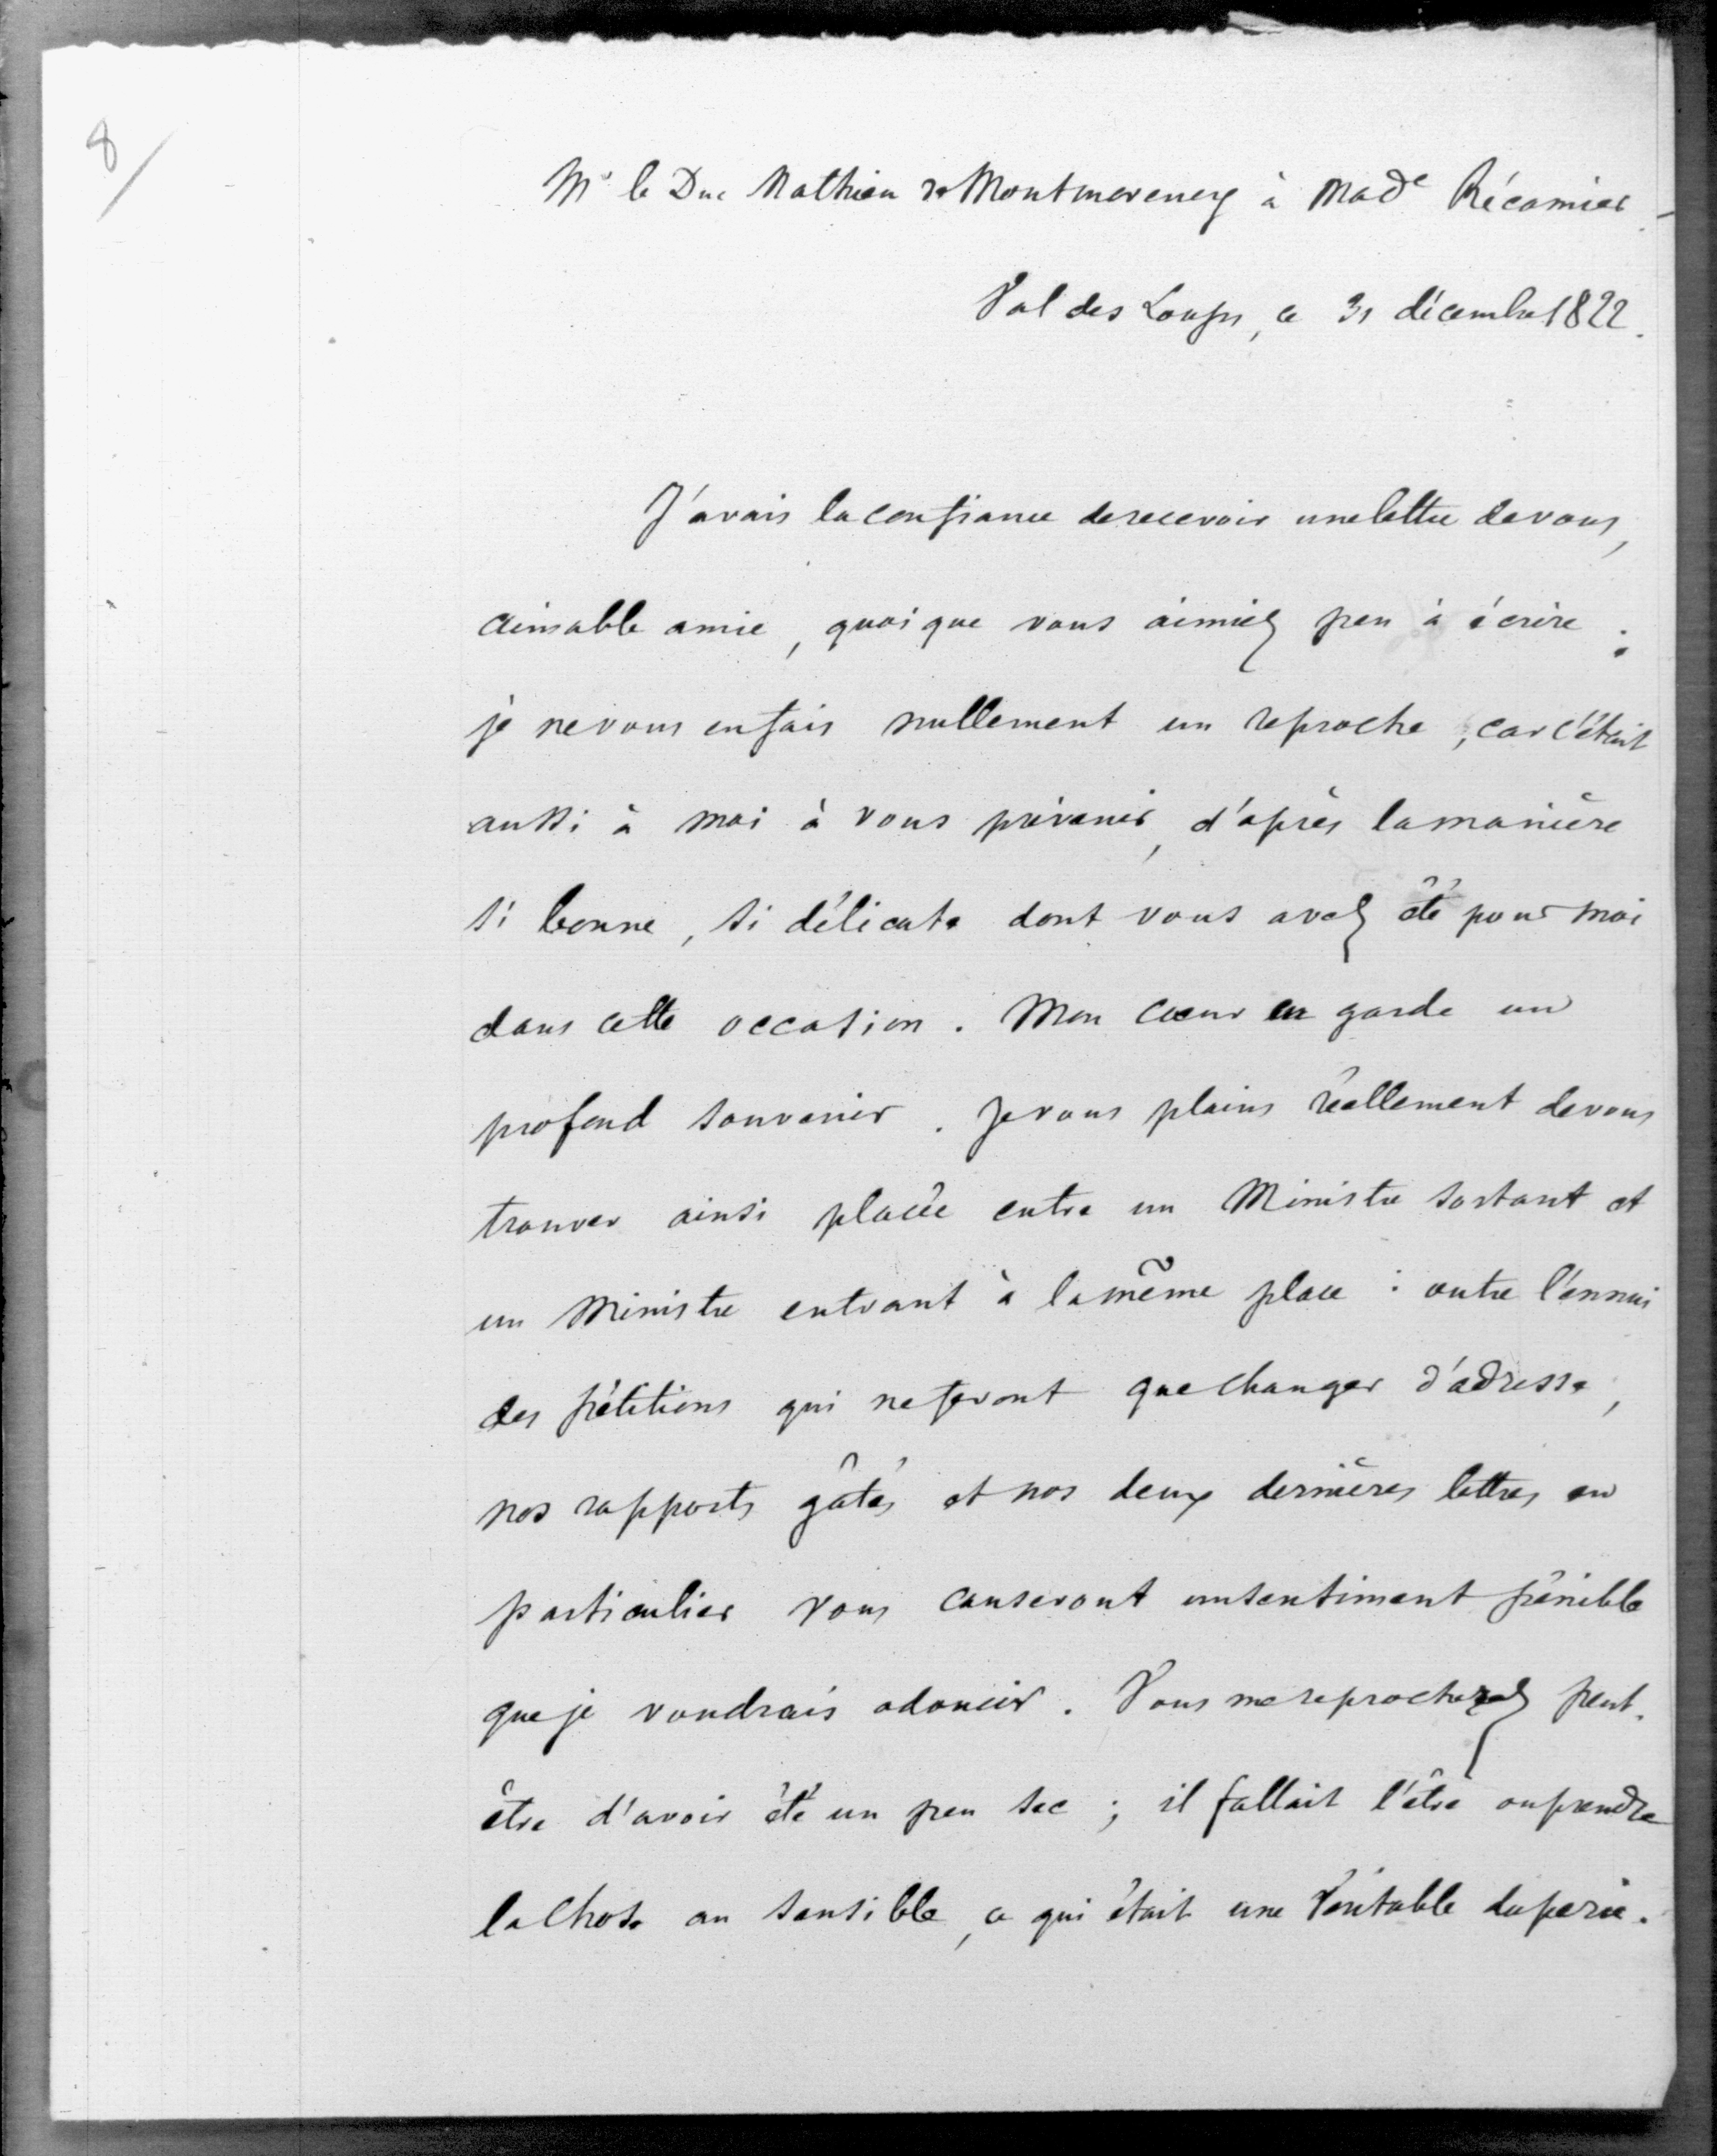 8/
Mr le Duc Mathieu de Montmorency à Made Récamier.
Val des Loups, ce 31 décembre 1822.
J'avais la confiance de recevoir une lettre de vous,
aimable amie, quoique vous aimiez peu à écrire ;
je ne vous en fais nullement un reproche, car c'était
aussi à moi à vous prévenir, d'après la manière
si bonne, si délicate dont vous avez été pour moi
dans cette occasion. Mon cœur en garde un
profond souvenir. Je vous plains réellement de vous
trouver ainsi placée entre un Ministre sortant et
un Ministre entrant à la même place : outre l'ennui
des pétitions qui ne feront que changer d'adresse,
nos rapports gâtés et nos deux dernières lettres en
particulier vous causeront un sentiment pénible
que je voudrais adoucir. Vous me reprocherez peut-
être d'avoir été un peu sec ; il fallait l'être ou prendre
la chose au sensible, ce qui était une véritable duperie.